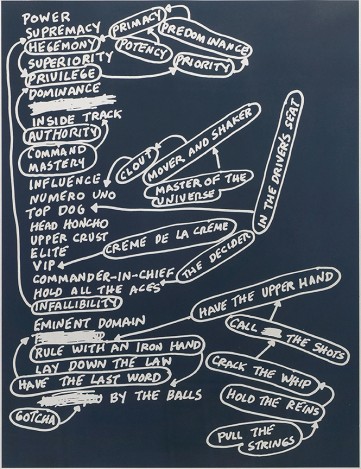 POWER
SUPREMACY
PRIMACY
PREDOMINANCE
HEGEMONY
POTENCY
SUPERIORITY
PRIORITY
PRIVILEGE
DOMINANCE
INSIDE TRACK
AUTHORITY
COMMAND
MASTERY
CLOUT
MOVER AND SHAKER
IN THE DRIVER'S SEAT
INFLUENCE
MASTER OF THE
UNIVERSE
NUMERO UNO
TOP DOG
HEAD HONCHO
UPPER CRUST
CREME DE LA CREME
ELITE
THE DECIDER
VIP
COMMANDER-IN-CHIEF
HOLD ALL THE ACES
INFALLIBILITY
HAVE THE UPPER HAND
EMINENT DOMAIN
CALL THE SHOTS
RULE WITH AN IRON HAND
LAY DOWN THE LAW
CRACK THE WHIP
HAVE THE LAST WORD
HOLD THE REINS
BY THE BALLS
GOTCHA
PULL THE
STRINGS